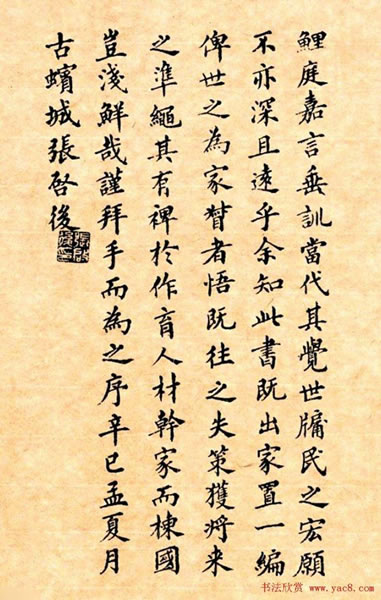 鯉庭嘉言垂訓當代其覺世牖民之宏願
不亦深且遠乎余知此書既出家置一編
俾世之為家督者悟既往之失策獲将来
之準繩其有裨於作育人材幹家而棟國
豈淺鮮哉謹拜手而為之序辛巳孟夏月
古蠙城張啓後
书法欣赏 www.yac8.com